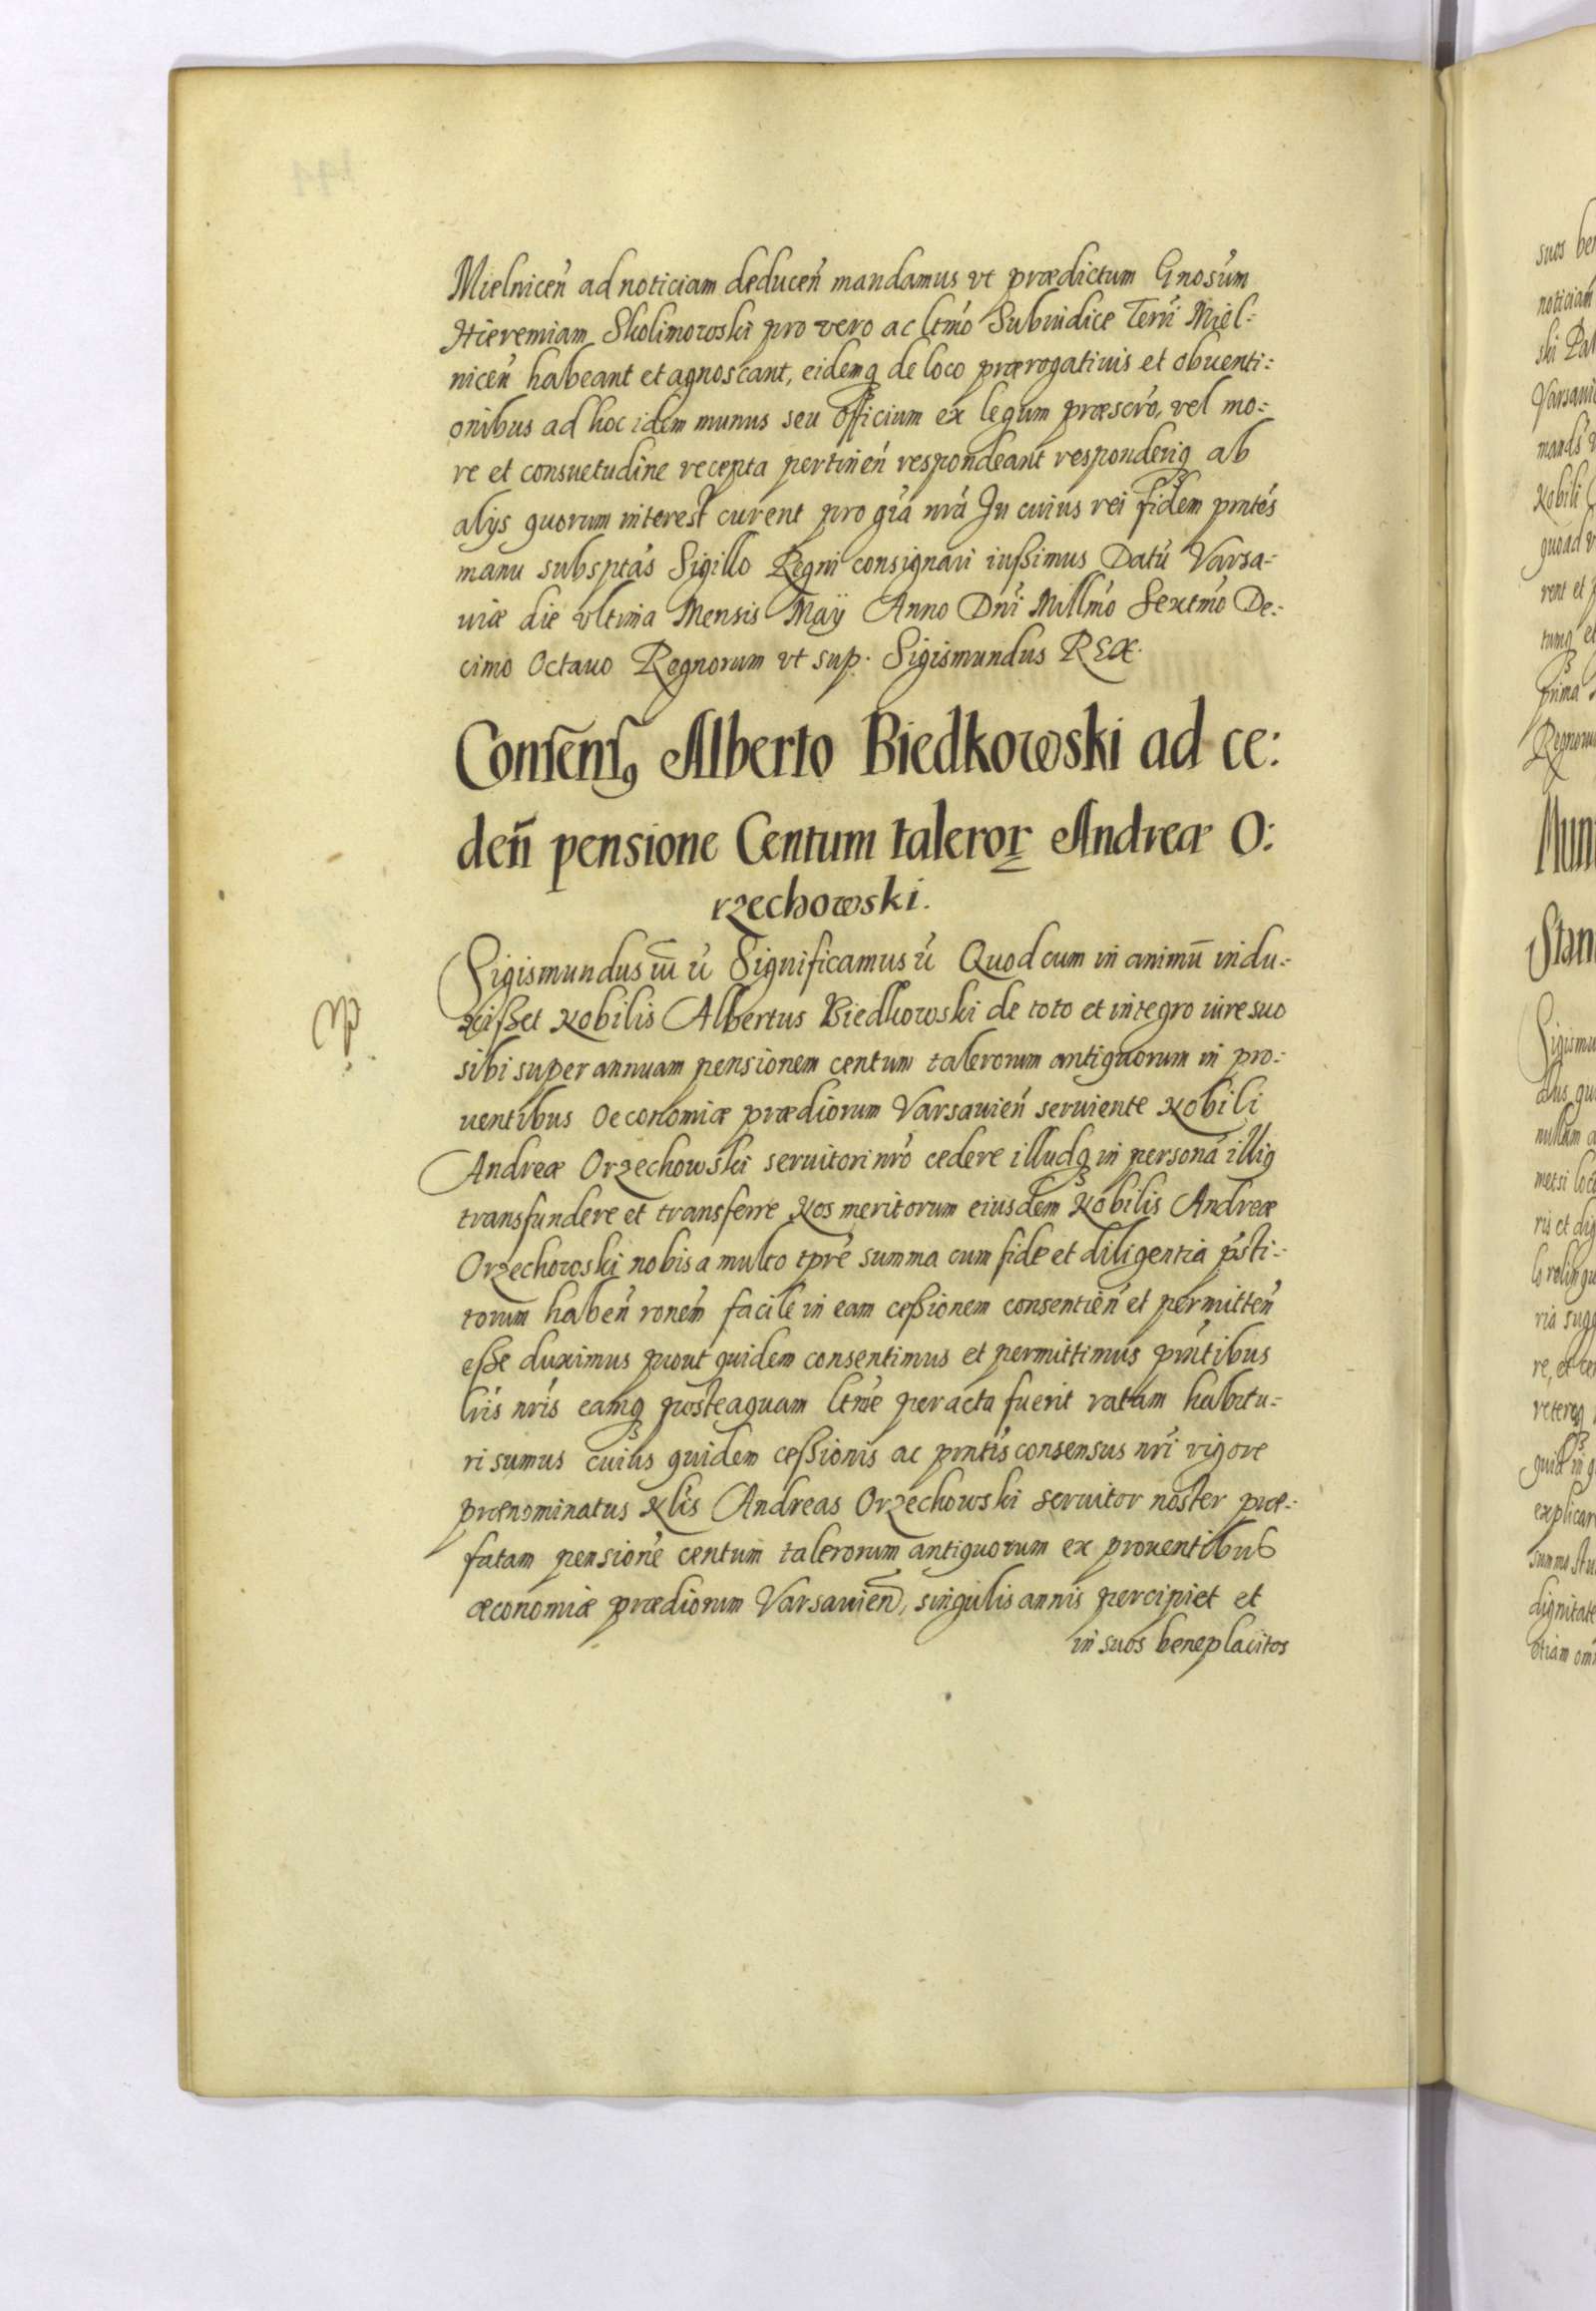 Mielnicen̄ ad noticiam deducen̄ mandamus vt prædictum Gnosūm
Hieremiam Skolimowski pro vero ac ltmō Subiudice Terrī Miel=
nicen̄ habeant et agnoscant, eidemq́ de loco prærogatiuis et obuenti=
onibus ad hoc idem munus seu officium ex legum præscrō, vel mo=
re et consuetudine recepta pertinen̄ respondeant responderiq́ ab
alijs quorum interest curent pro grā nrā In cuius rei fidem pn̄tes
manu subsptās Sigillo Regni consignari iußimus Datū Varsa-
uiæ die vltima Mensis Maÿ Anno Dn̄i Millmō Sextmō De=
cimo Octauo Regnorum vt sup. Sigismundus REX.
Consens9 Alberto Biedkowski ad ce:
den̄ pensione Centum taleror̄ Andreæ O:
rzechowski.
Sigismundus iii ū Significamus ū Quod cum in animū indu=
xißet Nobilis Albertus Biedkowski de toto et integro iure suo
sibi super annuam pensionem centum talerorum antiquorum in pro=
uentibus Oeconomiæ prædiorum Varsauien̄ seruiente Nobili
Andreæ Orzechowski seruitori nrō cedere illudq́ in personā illi9
transfundere et transferre Nos meritorum eiusdem Nobilis Andreæ
Orzechowski nobis a multo tp̄re summa cum fide et diligentia p̄sti=
torum haben̄ ronēm facile in eam ceßionem consentien̄ et permitten̄
eße duximus prout quidem consentimus et permittimus pn̄tibus
lrīs nrīs eamq́ posteaquam ltmē peracta fuerit ratam habitu-
ri sumus cuius quidem ceßionis ac pn̄tis consensus nrī vigore
prænominatus Nlīs Andreas Orzechowski seruitor noster præ=
fatam pensionē centum talerorum antiquorum ex prouentibus
œconomiæ prædiorum Varsauien̄, singulis annis percipiet et
in suos beneplacitos